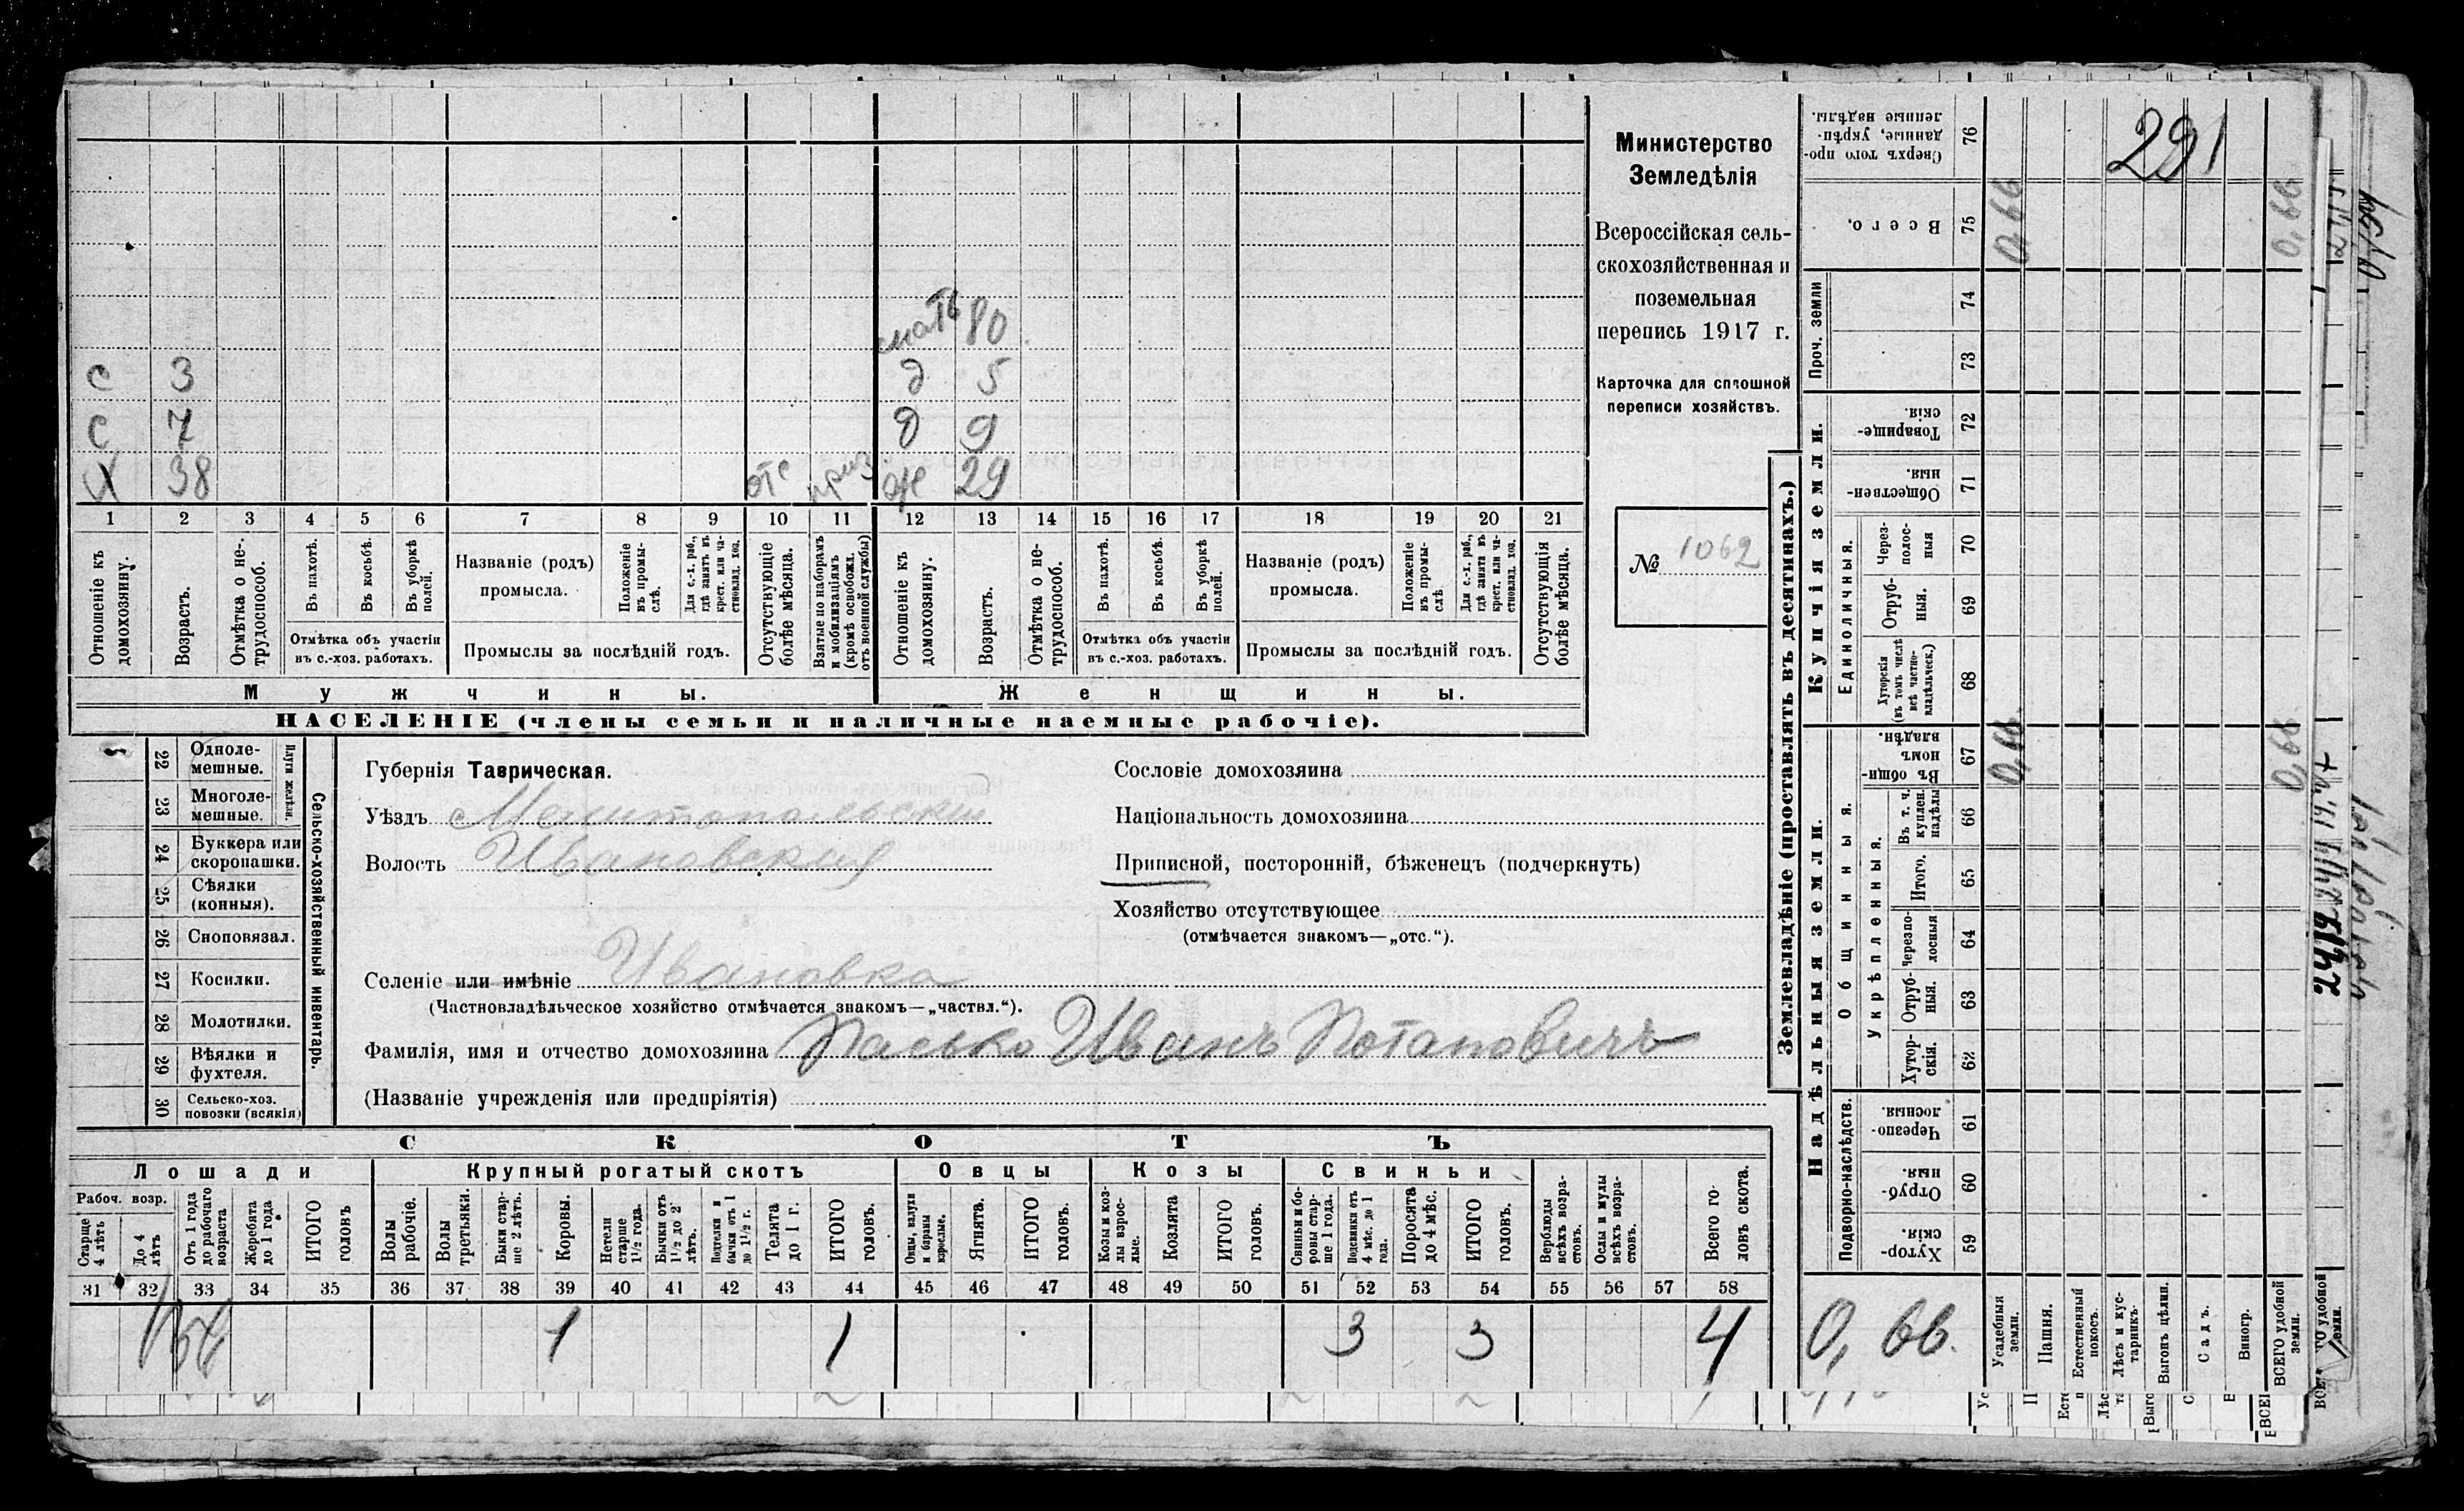 291
Министерство
Земледѣлія
Всероссійская сель-
скохозяйственная и
поземельная
перепись 1917 г.
Карточка для сплошной
переписи хозяйствъ.
№ 1062
мать 80
с 3 д 5
с 7 д 9
Х 38 отс приз ж 29
1 2 3 4 5 6 7 8 9 10 11 12 13 14 15 16 17 18 19 20 21
Отношеніе къ домохозяину.
Возрастъ.
Отмѣтка о не-трудоспособ.
Въ пахотѣ.
Въ косьбѣ.
Въ уборкѣ полей.
Отмѣтка объ участіи въ с.-хоз. работахъ.
Названіе (родъ) промысла.
Положеніе въ промы-слѣ.
Для с.-х. раб., гдѣ занятъ въ крест. или ча-стновлад. хоз.
Промыслы за послѣдній годъ.
Отсутствующіе болѣе мѣсяца.
Взятые по наборамъ и мобилизаціямъ (кромѣ освобожд. отъ военной службы)
Отношеніе къ домохозяину.
Возрастъ.
Отмѣтка о не-трудоспособ.
Въ пахотѣ.
Въ косьбѣ.
Въ уборкѣ полей.
Отмѣтка объ участіи въ с.-хоз. работахъ.
Названіе (родъ) промысла.
Положеніе въ промы-слѣ.
Для с.-х. раб., гдѣ занята въ крест. или ча-стновлад. хоз.
Промыслы за послѣдній годъ.
Отсутствующія болѣе мѣсяца.
Мужчины. Женщины.
НАСЕЛЕНІЕ (члены семьи и наличные наемные рабочіе).
Сельско-хозяйственный инвентарь.
Плуги желѣзн.
22 Одноле-мешные.
23 Многоле-мешные.
24 Буккера или скоропашки.
25 Сѣялки (конныя).
26 Сноповязал.
27 Косилки.
28 Молотилки.
29 Вѣялки и фухтеля.
30 Сельско-хоз. повозки (всякія)
Губернія Таврическая.
Уѣздъ Мелитопольскій
Волость Ивановская
Селеніе или имѣніе Ивановка
(Частновладѣльческое хозяйство отмѣчается знакомъ—„частвл.“).
Фамилія, имя и отчество домохозяина Пасько Иванъ Потаповичъ
(Названіе учрежденія или предпріятія)
Сословіе домохозяина
Національность домохозяина
Приписной, посторонній, бѣженецъ (подчеркнуть)
Хозяйство отсутствующее
(отмѣчается знакомъ—„отс.“).
СКОТЪ
Лошади Крупный рогатый скотъ Овцы Козы Свиньи
Рабоч. возр.
Старше 4 лѣтъ
До 4 лѣтъ
Отъ 1 года до рабочаго возраста
Жеребята до 1 года
ИТОГО головъ
Волы рабочіе.
Волы третьяки.
Быки стар-ше 2 лѣтъ.
Коровы.
Нетели старше 1½ года.
Бычки отъ 1½ до 2 лѣтъ.
Подтелки и бычки отъ 1 до 1½ г.
Телята до 1 г.
ИТОГО головъ.
Овцы, валухи и бараны взрослые.
Ягнята.
ИТОГО головъ.
Козы и коз-лы взрос-лые.
Козлята
ИТОГО головъ.
Свиньи и бо-ровы стар-ше 1 года.
Подсвинки отъ 4 мѣс. до 1 года.
Поросята до 4 мѣс.
ИТОГО головъ.
Верблюды всѣхъ возра-стовъ.
Ослы и мулы всѣхъ возра-стовъ.
Всего го-ловъ скота.
31 32 33 34 35 36 37 38 39 40 41 42 43 44 45 46 47 48 49 50 51 52 53 54 55 56 57 58
1 1 3 3 4
Землевладѣніе (проставлять въ десятинахъ.)
Купчія земли.
Надѣльныя земли.
Сверхъ того про-данные, укрѣп-ленные надѣлы. 76
Всего. 75 0,66 0,66
Проч. земли 74 73
Товарище-скія. 72
Обществен-ныя. 71
Единоличныя.
Через-полос-ныя 70
Отруб-ныя. 69
Хуторскія (въ томъ числѣ всѣ частно-владѣльческ.) 68
Общинныя.
Въ общин-номъ владѣн. 67 0,66 0,66
Укрѣпленныя.
Въ т. ч. куплен. надѣлы 66
Итого. 65
Черезпо-лосныя 64
Отруб-ныя. 63
Хутор-скія. 62
Подворно-наслѣдств.
Черезпо-лосныя. 61
Отруб-ныя. 60
Хутор-скія. 59
0,66.
Усадебныя земли.
Пашня.
Естественный покосъ.
Лѣсъ и кус-тарникъ.
Выгонъ цѣлин.
Садъ.
Виногр.
ВСЕГО удобной земли.